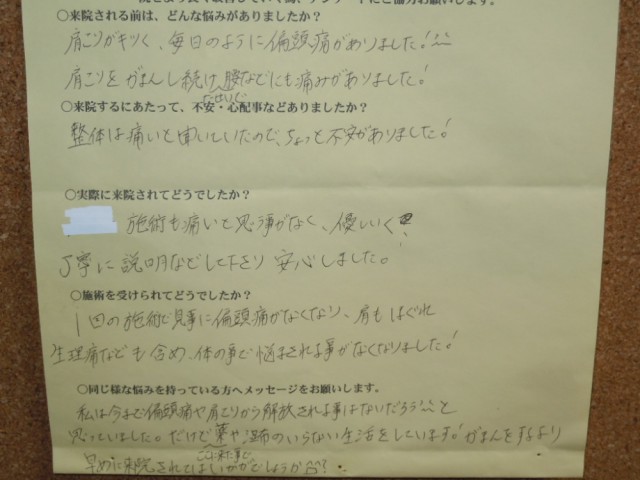 ○来院される前は、どんな悩みがありましたか?
肩こりがキツく、毎日のように偏頭痛がありました!^^
肩こりをがまんし続け、腰などにも痛みがありました!
たせいで
○来院するにあたって、不安・心配事などありましたか?
整体は痛いと聞いていたので、ちょっと不安がありました!
○実際に来院されてどうでしたか?
施術も痛いと思う事がなく、優しく
丁寧に説明などして下さり安心しました。
○施術を受けられてどうでしたか?
1回の施術で見事に偏頭痛がなくなり、肩もほぐれ
生理痛なども含め、体の事で悩まされる事がなくなりました!
○同じ様な悩みを持っている方へメッセージをお願いします。
私は今まで偏頭痛や肩こりから解放される事はないだろう^^と
思っていました。だけど薬や湿布のいらない生活をしています!がまんをするより
ここに来た事で
早めに来院されてはいかがでしょうか??